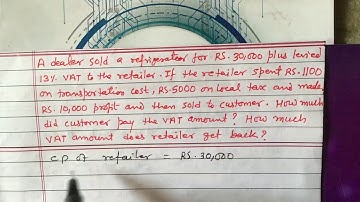 A dealer sold a refrigerator for RS. 30,000 plus levied
13% VAT to the retailer. If the retailer spent RS. 1100
on transportation cost, RS. 5000 on local tax and made
RS. 10,000 profit and then sold to customer. How much
did customer pay the VAT amount? How much
VAT amount does retailer get back?
CP of retailer = RS. 30,000